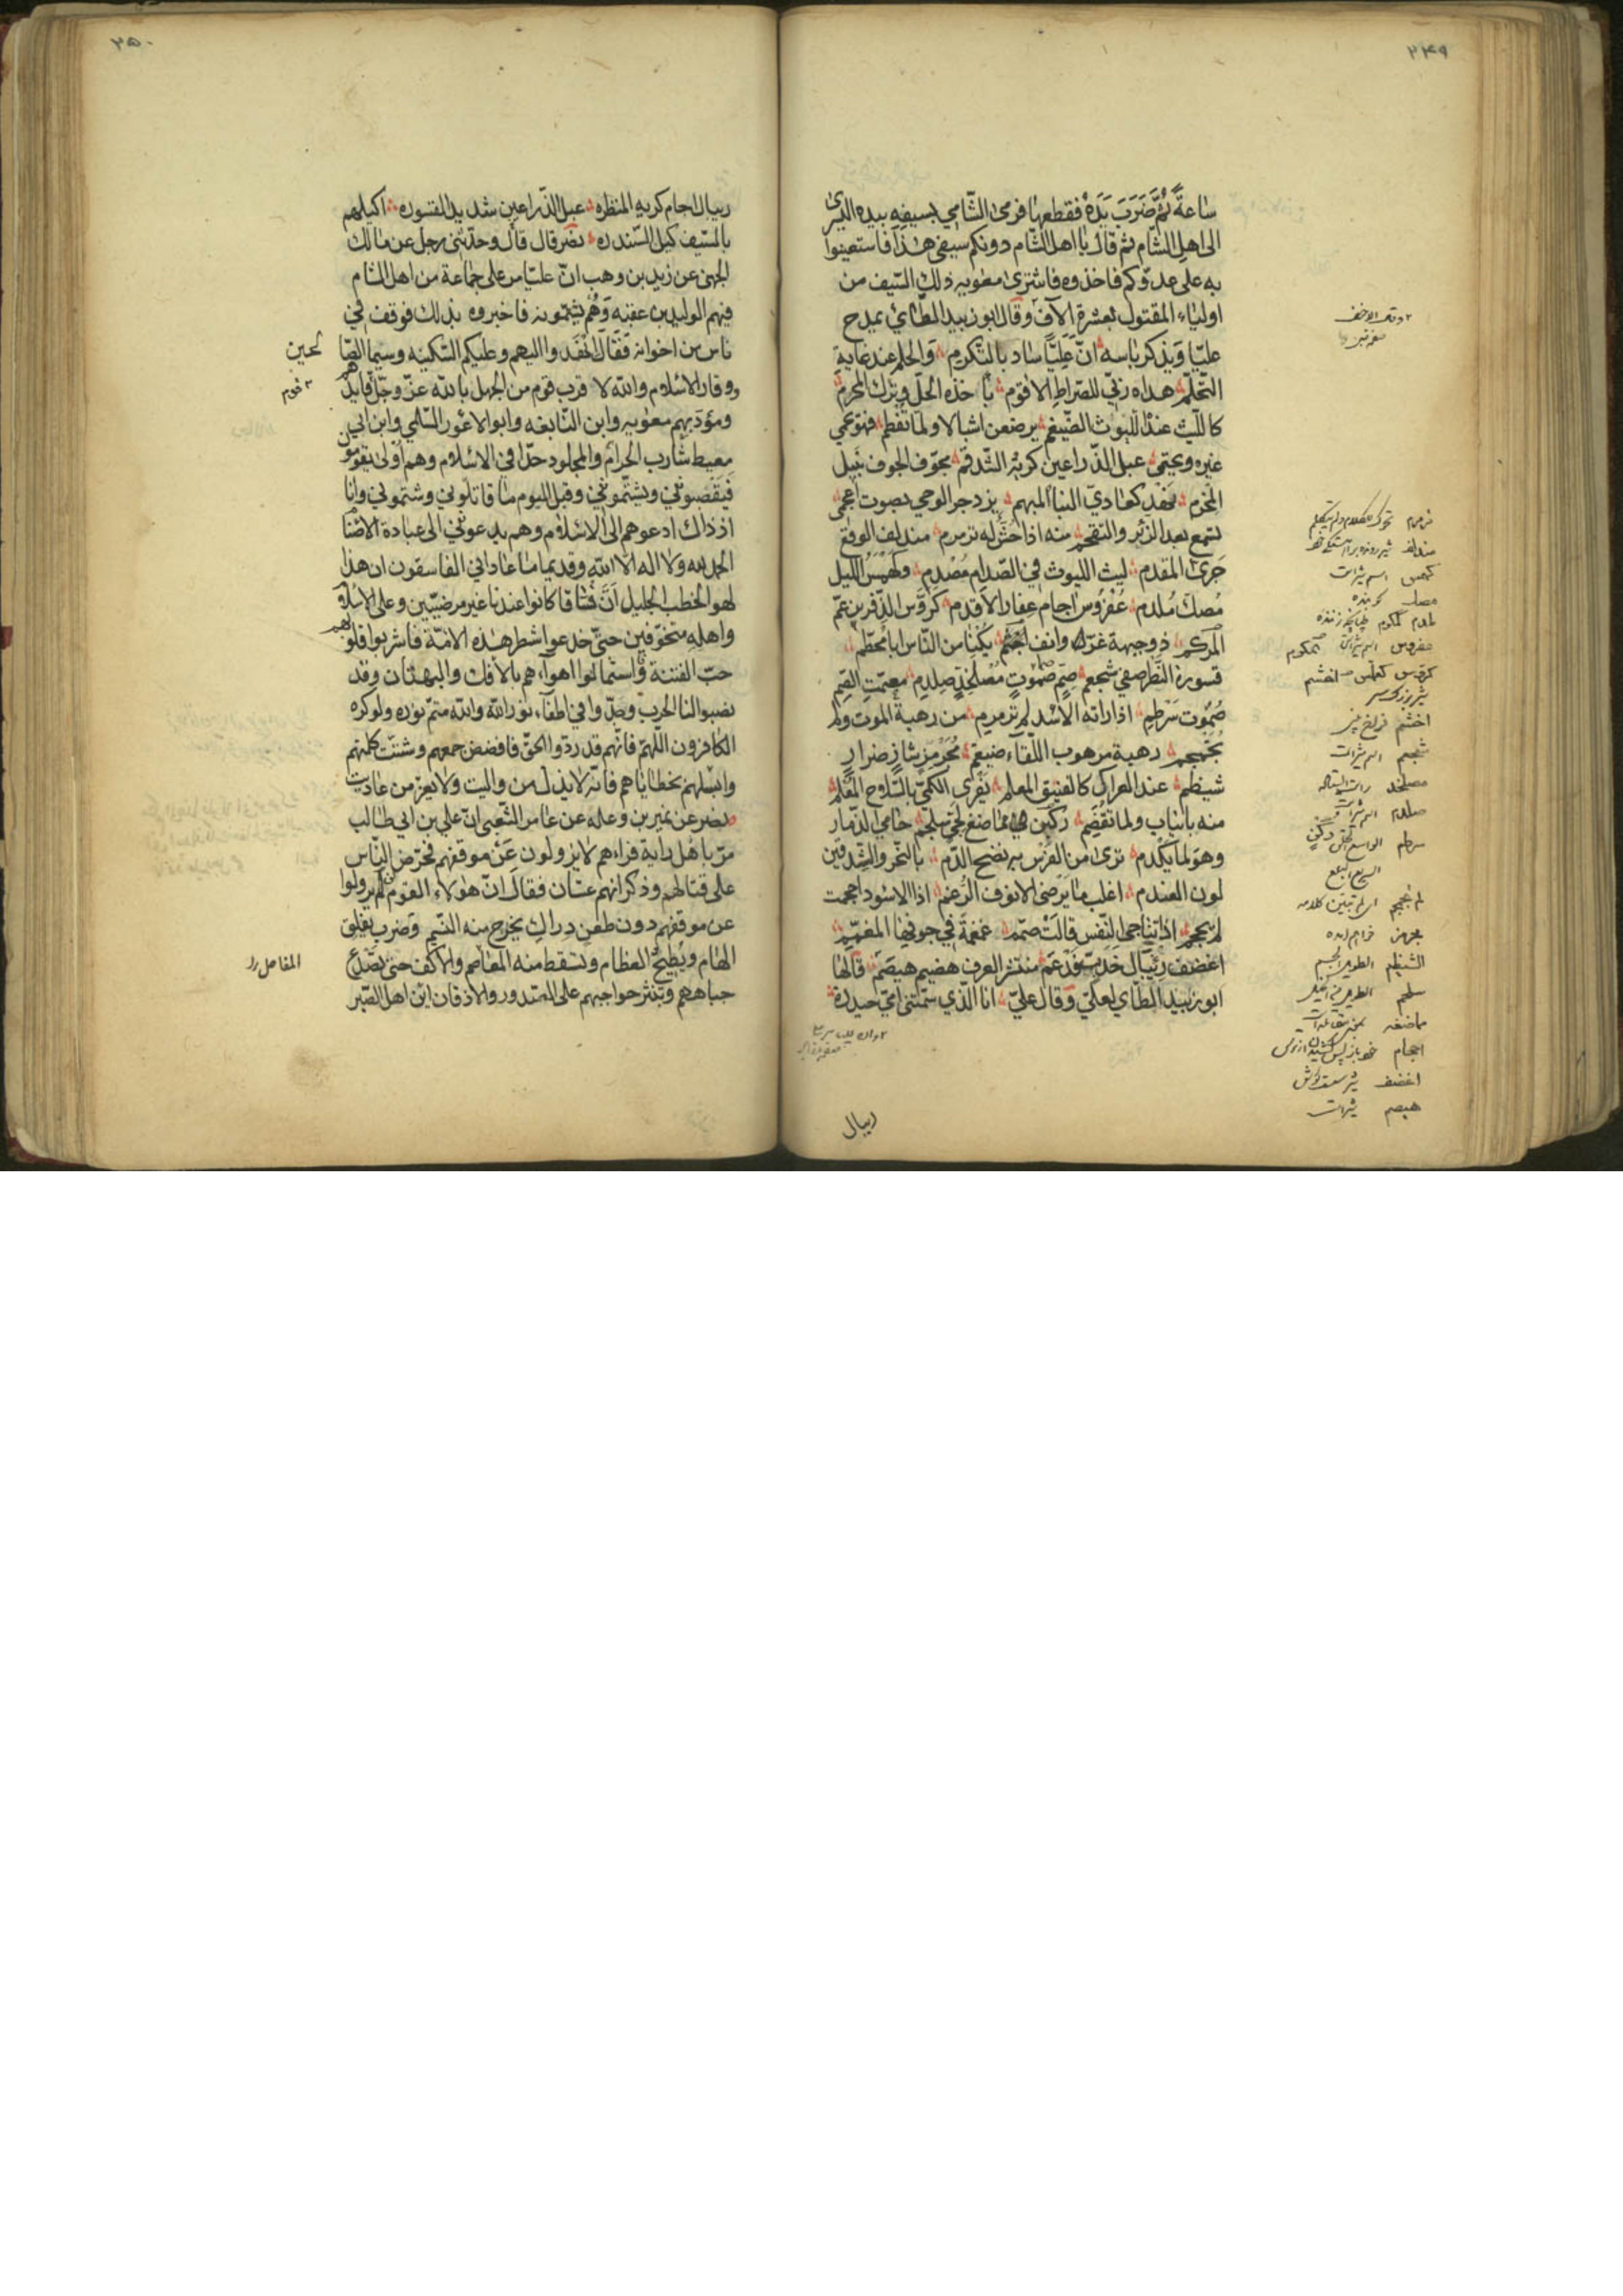 ٢٤٩
ساعة ثُمَّ ضَرَبَ يَدَهُ فقطعها فرمى الشّامي بسيفه بيده اليسرى
الى اهل الشام ثم قال يا اهل الشّام دونكم سيفى هذا فاستعينوا
به على عدوّكم فاخذوه فاشترى معويه ذلك السّيف من
اولياء المقتول بعشرة الآف وقال ابو زبيد الطّائي يمدح
عليّا وَيذكر باسه انّ عَليّا ساد بالتكرم والحلم عند غاية
التّحلّم هداه ربّي للصّراط الاقوم باخذه الحلّ وترك المحرم
كالليث عند اللّبوات الضّيغم يرضعن اشبالا ولما تفطم فهو يحمي
غيره ويحتمى عبل الذّراعين كريه الشّدقم مجوّف الجوف نبيل
المخرم نهد كعادي البنا المبهم يزدجر الوحي بصوت اعجم
تسمع بعد الزّبر والتقحم منه اذا حش له ترمرم مندلف الوقع
جَرى المقدم ليث الليوث في الصّدام مُصْدم وكهمس الليل
مُصكّ مُلدم عُفرُوس اجام عفار الاقدم كروّس الذّفرى عمّ
المركم ذو جبهة غرّا وانف اخثم يكنا من النّاس ابا محطّم
قسورة النّظر صفي شجعم صم صموت مصلخد صلدم مصمّت الصّم
صُموت سَرطم اذا راته الاسْد لم ترمرم من رهبة الموت ولم
تُجَمجم رهبة مرهوب اللّقاء ضيغم مجرمز شاز ضرار
شيظم عند العراك كالفنيق المعلم يفرى الكمّى بالسّلاح المُعْلم
منه بانياب ولما تُقضم ركبن في مماضغ لحي سلجم حامي الذّمار
وهو لما يُكدم ترى من الفرس به نضح الدّم بالنّحر والشّدقين
لون العندم اغلب ما يَرضى الانوف الرُغم اذا الاسود احجمت
لم يحجم اذا تناجى النّفس قالت صمّم غمغمة في جوفها المغمغم
اغضف رئبال خدبّ فَدْغم منتشر العرف هضيم هيصم قالها
ابو زبيد الطّاي لعليّ وَقال عليّ انا الّذي سمّتني امي حيدرة
ريبال
ترمرم تحرك للكلام ولم يتكلم
كهمس اسم شيراست
شجعم اسم شيراست
صلدم اسم شيراست
سرطم الواسع الحلق
السريع البلع
الشيظم الطويل الجسيم
هيصم شيراست
٢٥٠
ريبال اجام كريه المنظره عبل الذّراعين شديد القسوره اكيلهم
بالسّيف كيل السّندره نصر قال قال وحدثنى رجل عن مالك
الجهني عن زيد بن وهب انّ عليّا مر على جماعة من اهل الشام
فيهم الوليد بن عقبه وَهُم يشتمونه فاخبروه بذلك فوقف في
ناس من اصحابه فقال انْهَدوا اليهم وعليكم السّكينه وسيما الصّا
لحين
ووقار الاسلام والله لا قرب قوم من الجهل بالله عز وجل قايدهم
ومؤدبهم معويه وابن النّابغه وابو الاعور السّلمي وابن ابي
معيط شارب الحرام والمجلود حدّا في الاسلام وهم اولى يقومون
فيقصبوننى ويشتموننى وقبل اليوم ما قاتلونى وشتمونى وانا
اذ ذاك ادعوهم الى الاسلام وهم يدعونني الى عبادة الاصنام
الحمد لله ولا اله الا الله وقديما ما عاداني الفاسقون ان هذا
لهو الخطب الجليل انّ فُسّاقا كانوا عندنا غير مرضيّين وعلى الاسلام
واهله متخوّفين حتىّ خدعوا شطر هذه الامّة فاشربوا قلوبهم
حبّ الفتنة واستمالوا اهوآءهم بالافك والبهتان وقد
نصبوا لنا الحرب وجدّوا في اطفآء نور الله والله متمّ نوره ولو كره
الكافرون اللّهمّ فانّهم قد ردّوا الحقّ فافضض جمعهم وشتّت كلمتهم
وابسلهم بخطاياهم فانّه لا يذل من واليت ولا يعزّ من عاديت
نصر عن نمير بن وعله عن عامر الشّعبى انّ علي بن ابي طالب
مرّ باهل راية فراهم لا يزولون عَنْ موقفهم فحرّض النّاس
على قتالهم وذكر انهم غسان فقال انّ هؤلاء القوم لم يزولوا
عن موقفهم دون طعن دراك يخرج منه النّسيم وَضرب يفلق
الهام ويُطيح العظام وتسقط منه المعاصم والاكفّ حتّى تصدّع
جباههم وتنثر حواجبهم على الصّدور والاذقان اين اهل الصّبر